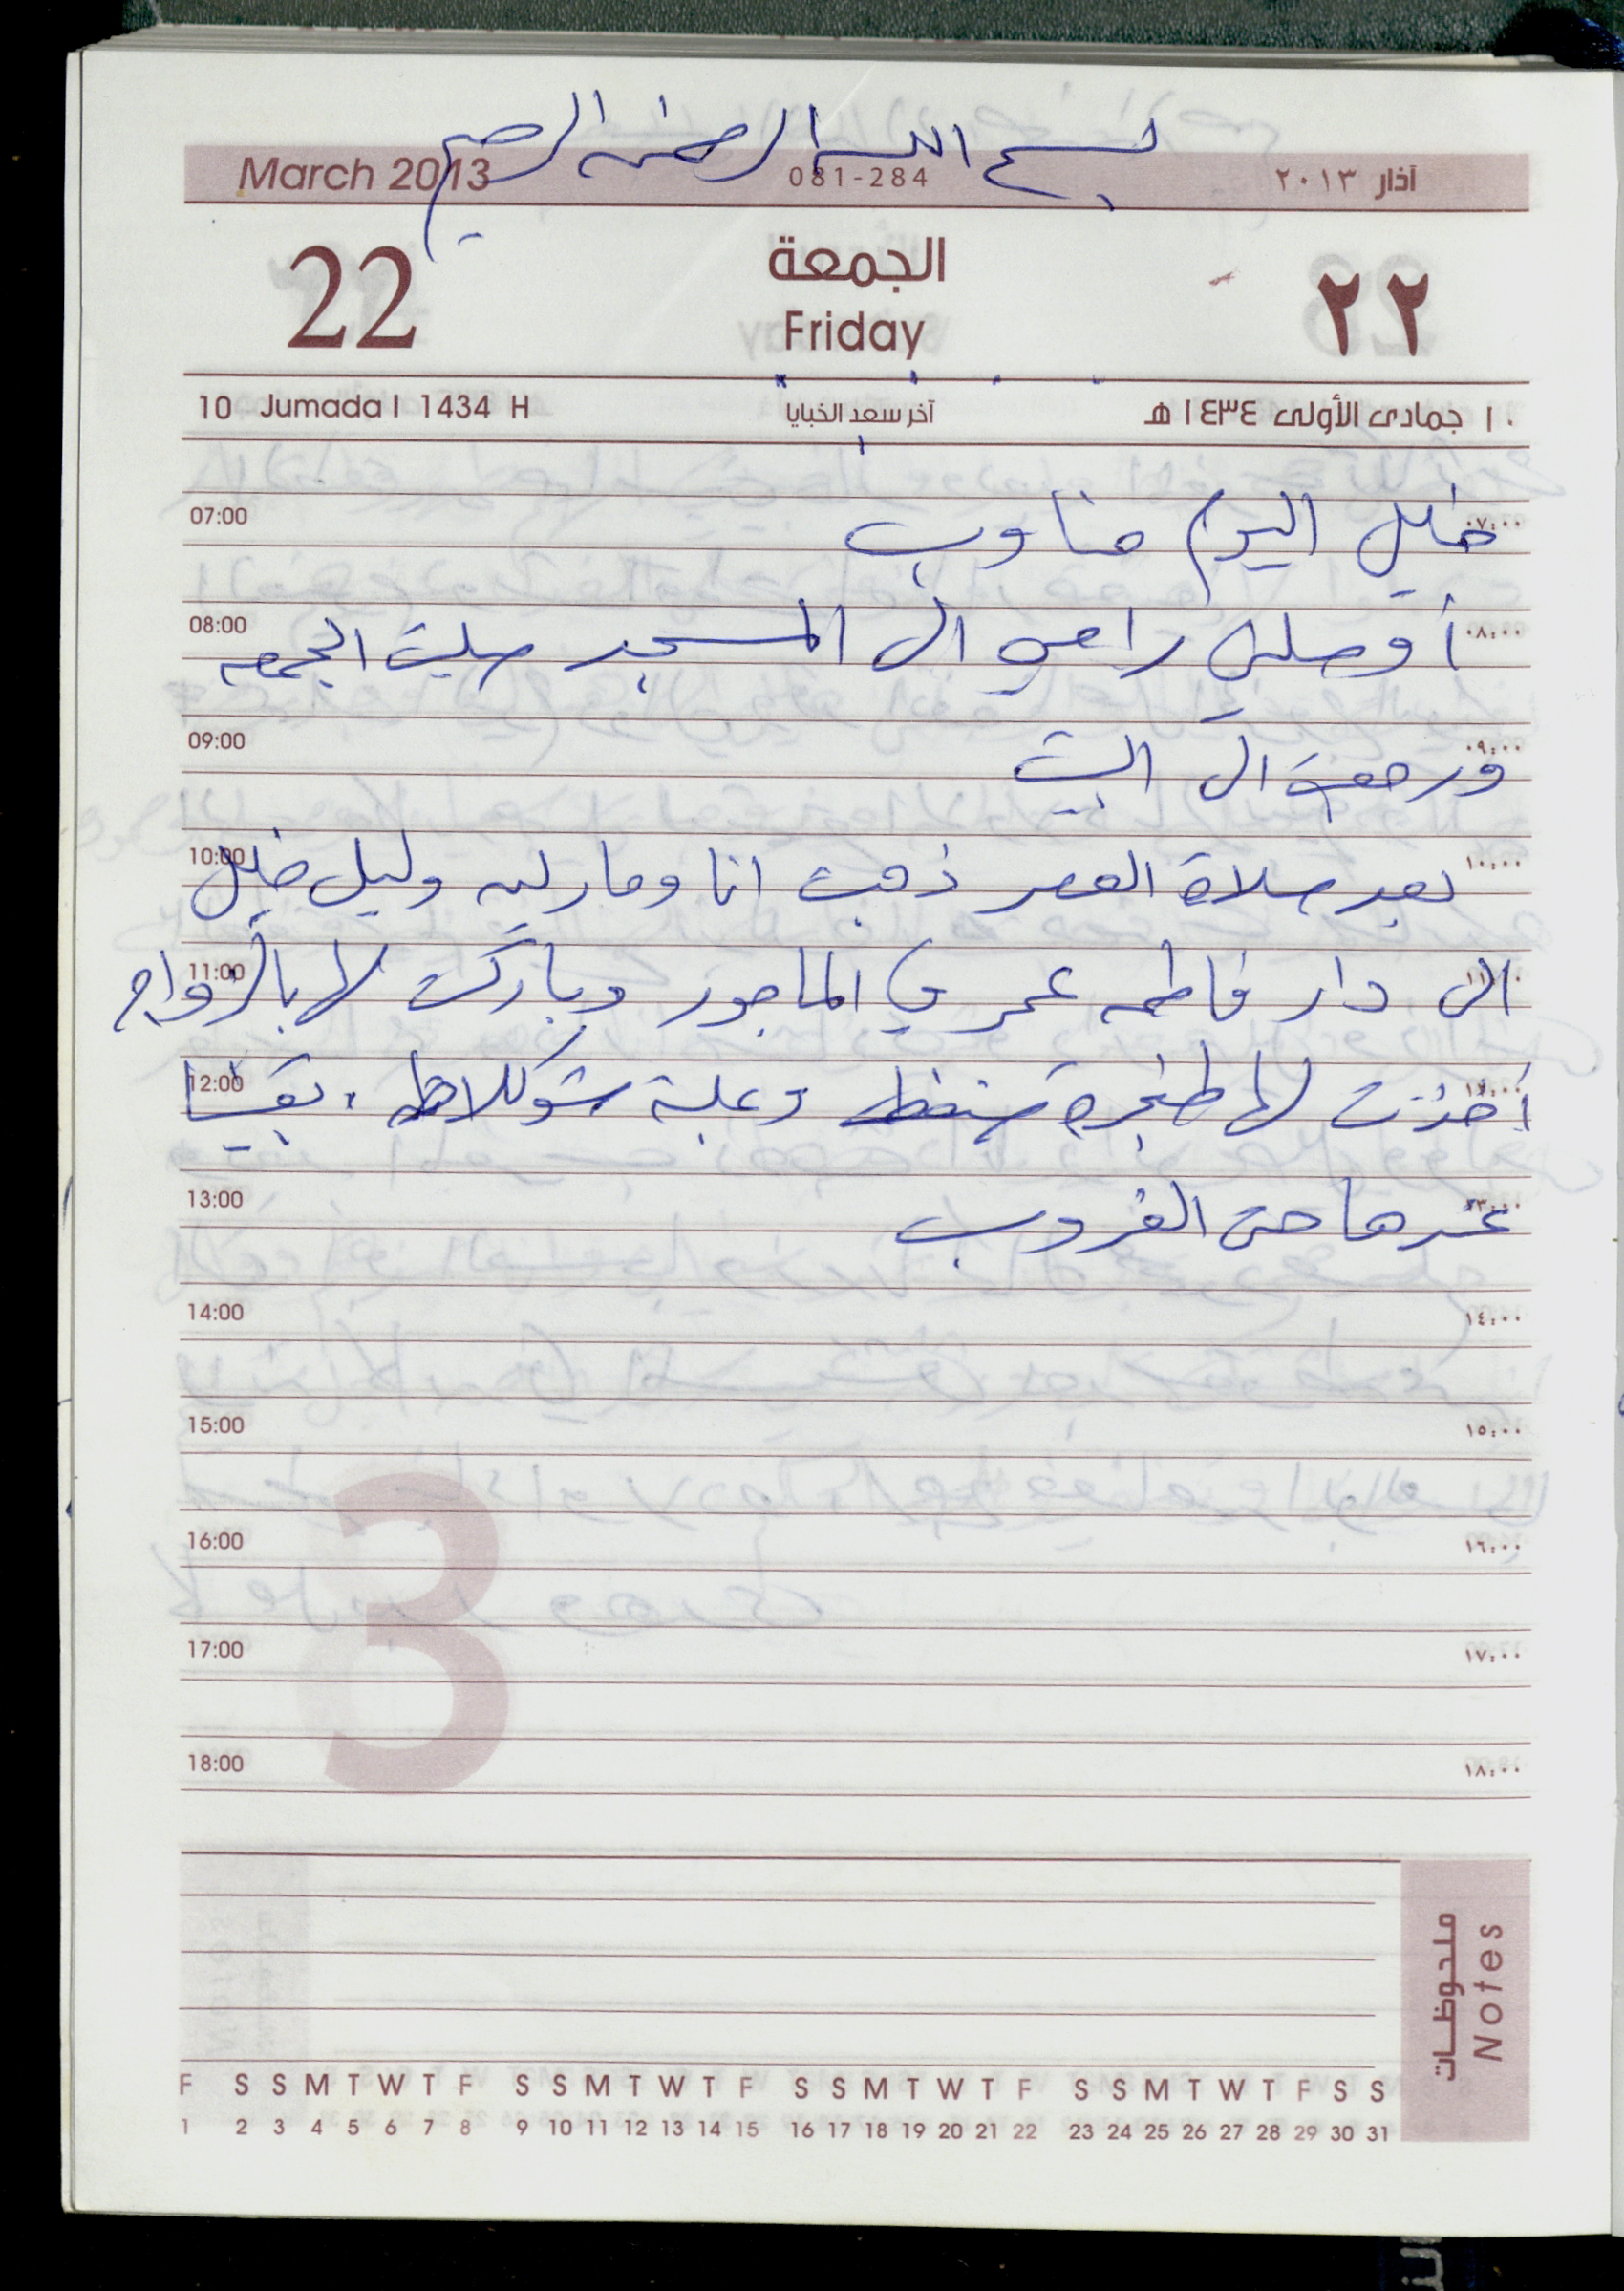 بسم الله الرحمن الرحيم
March 2013 081-284 آذار ٢٠١٣
22 الجمعة ٢٢
Friday
10 Jumada I 1434 H آخر سعد الخبايا ١٠ جمادى الأولى ١٤٣٤ هـ
07:00 خليل اليوم مناوب ٠٧:٠٠
08:00 أوصلني رامي الى المسجد صليت الجمعه ٠٨:٠٠
09:00 ورجعت الى البيت ٠٩:٠٠
10:00 بعد صلاة العصر ذهبت انا ومارلين وليل خليل ١٠:٠٠
11:00 الى دار فاطمه عمر في الماجور وباركت لها بالزواج
12:00 أخذت لها طنجرة ضغط وعلبة شوكلاطه . بقينا ١٢:٠٠
13:00 عندها حتى الغروب ١٣:٠٠
14:00 ١٤:٠٠
15:00 ١٥:٠٠
16:00 ١٦:٠٠
17:00 ١٧:٠٠
18:00 ١٨:٠٠
3
ملحوظات
Notes
F S S M T W T F S S M T W T F S S M T W T F S S M T W T F S S
1 2 3 4 5 6 7 8 9 10 11 12 13 14 15 16 17 18 19 20 21 22 23 24 25 26 27 28 29 30 31